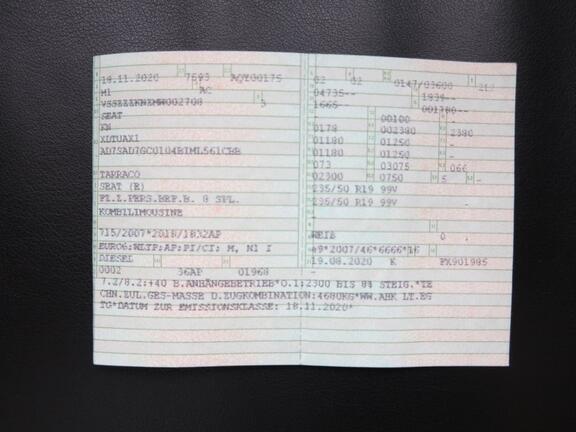 18.11.2020 7593 AQY00175
M1 AC
5
SEAT
KN
XDTUAX1
TARRACO
SEAT (E)
FZ.Z.PERS.BEF.B. 8 SPL.
KOMBILIMOUSINE
715/2007*2018/1832AP
EURO6;WLTP;AP;PI/CI; M, N1 I
DIESEL
0002 36AP 01968
02 02 0147/03600 212
04735-- 1839--
1665--
- 00100 -
0178 002380 2380
01180 01250 -
01180 01250 -
073 03075 066
02300 0750 5 -
235/50 R19 99V
235/50 R19 99V
-
WEIß 0
e9*2007/46*6666*16
19.08.2020 K PX901985
-
7.2/8.2:+40 B.ANHÄNGEBETRIEB*O.1:2300 BIS 8% STEIG.*TE
CHN.ZUL.GES-MASSE D.ZUGKOMBINATION:4680KG*WW.AHK LT.EG
TG*DATUM ZUR EMISSIONSKLASSE: 18.11.2020*